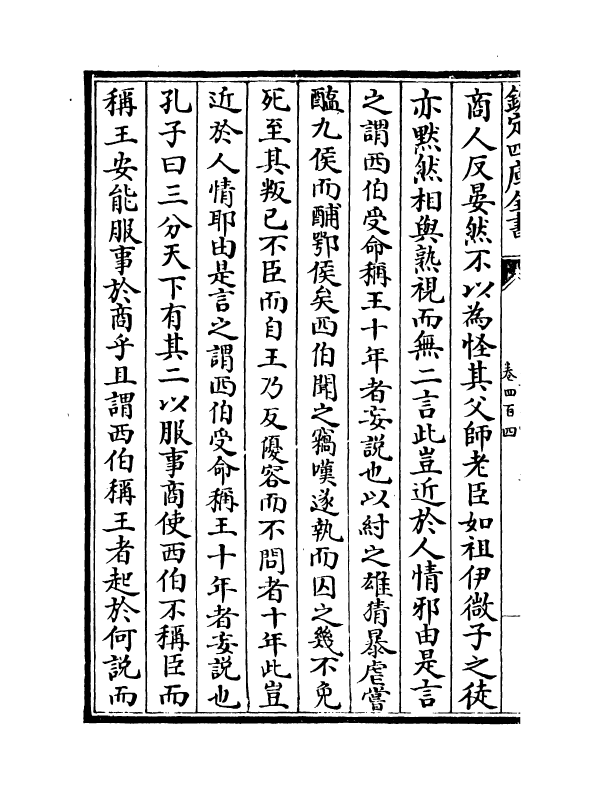 欽定四庫全書
卷四百四
商人反晏然不以為怪其父師老臣如祖伊微子之徒
亦默然相與熟視而無二言此豈近於人情邪由是言
之謂西伯受命稱王十年者妄說也以紂之雄猜暴虐嘗
醢九侯而脯鄂侯矣西伯聞之竊嘆遂執而囚之幾不免
死至其叛已不臣而自王乃反優容而不問者十年此豈
近於人情耶由是言之謂西伯受命稱王十年者妄說也
孔子曰三分天下有其二以服事商使西伯不稱臣而
稱王安能服事於商乎且謂西伯稱王者起於何說而